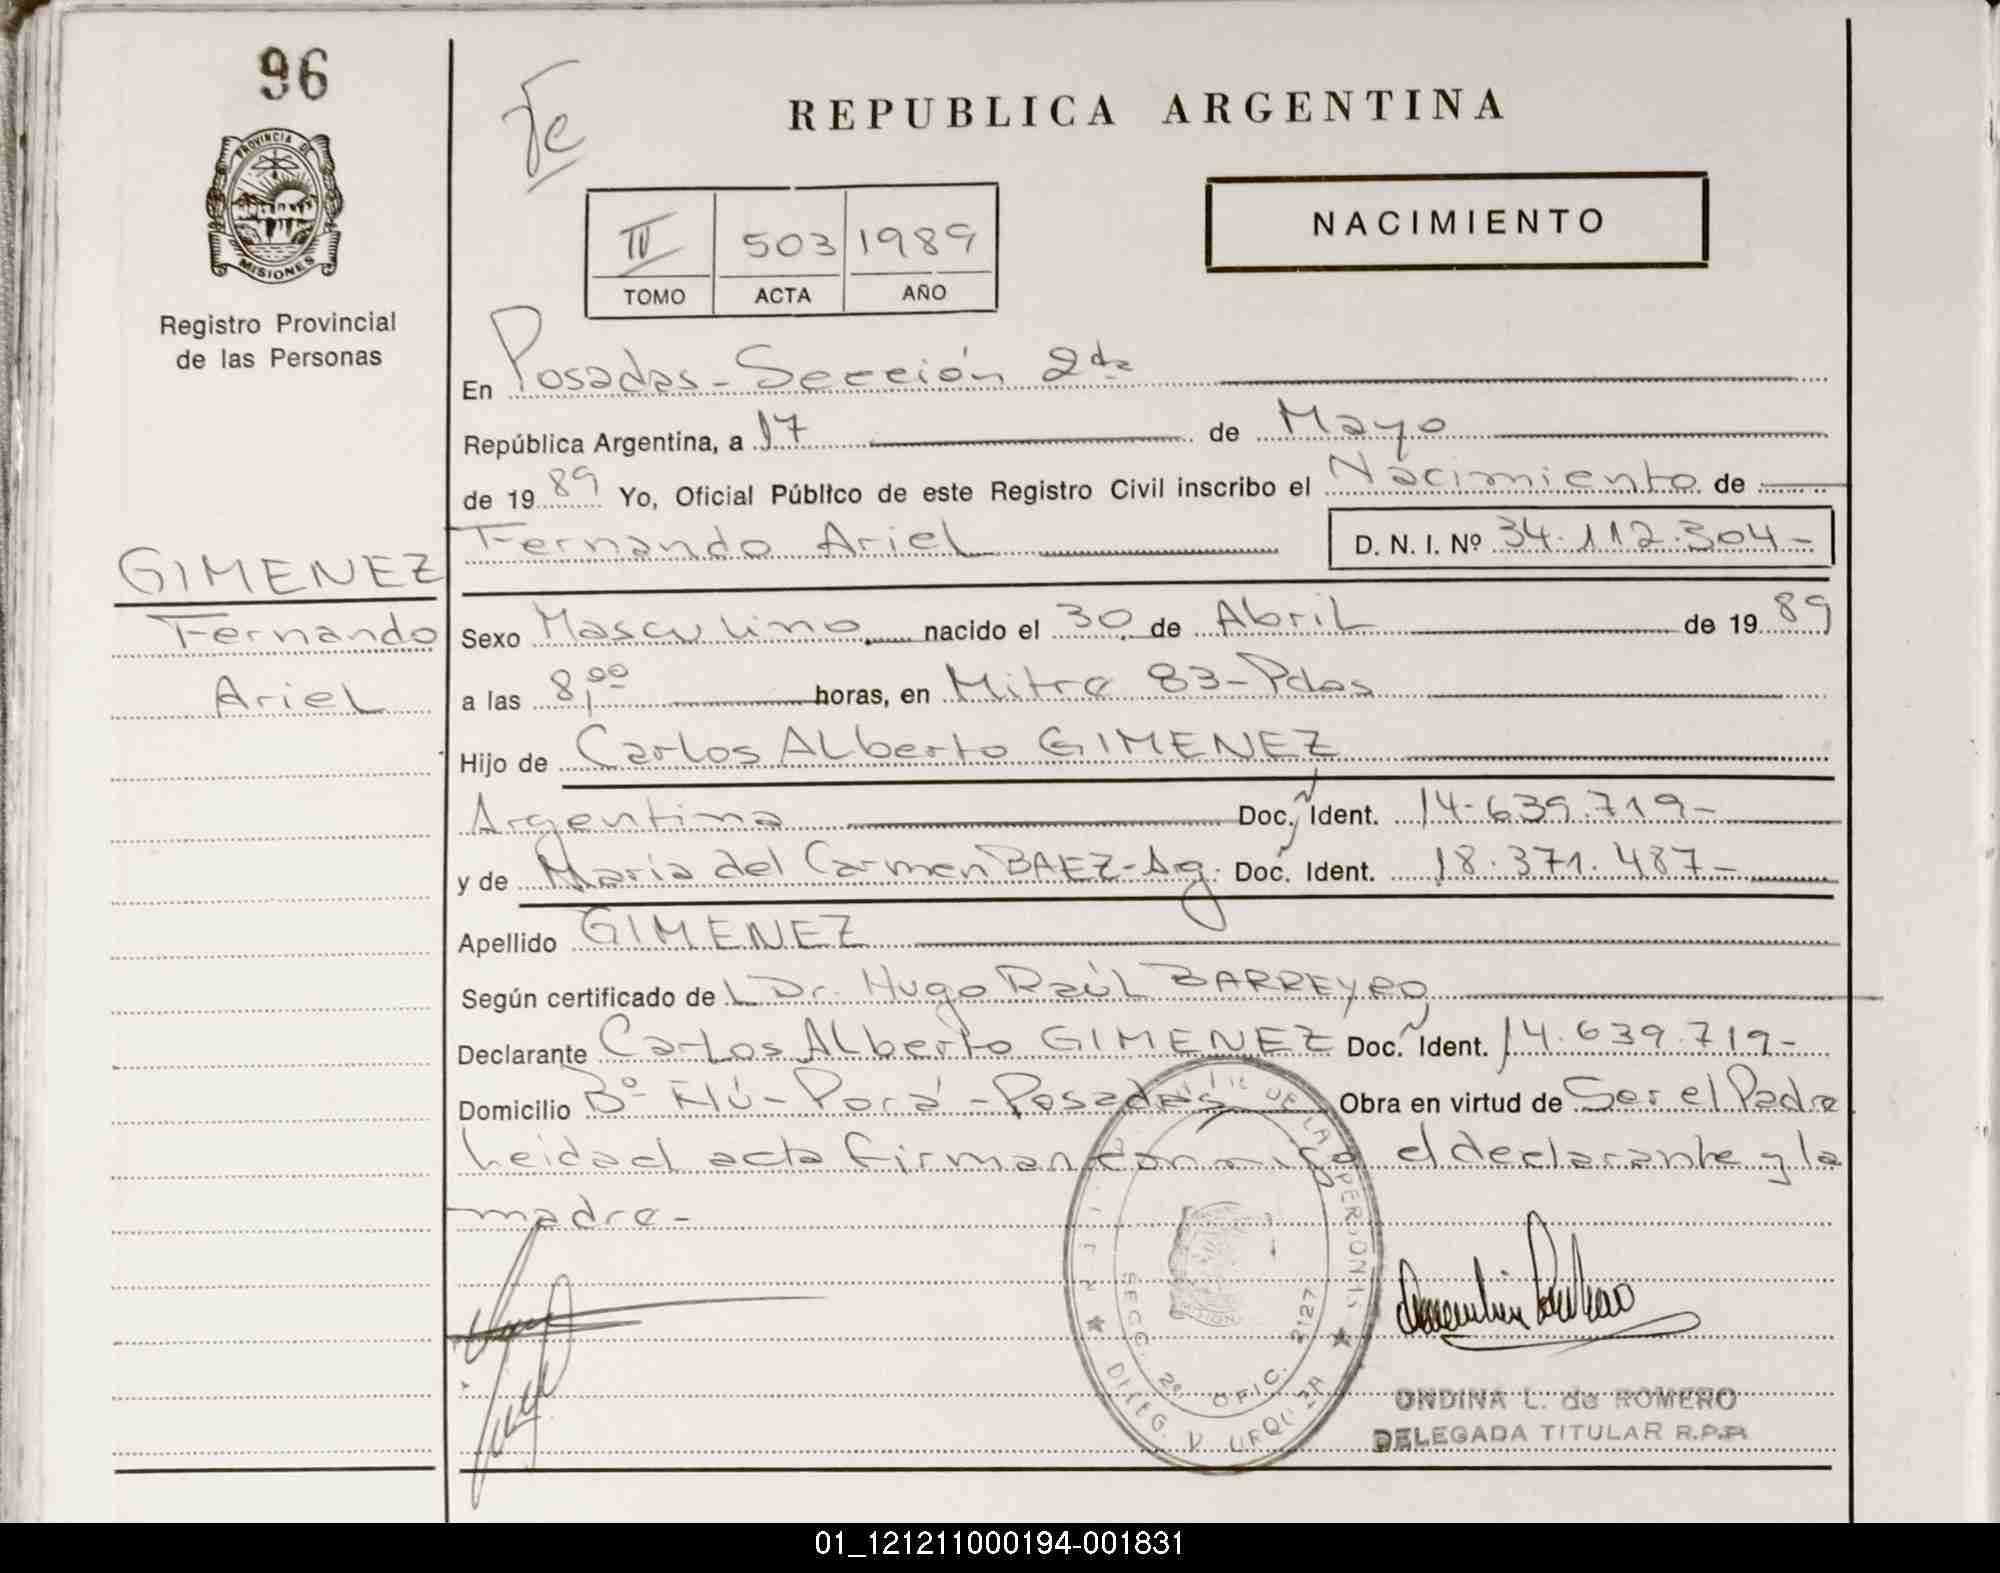 96
PROVINCIA DE
MISIONES
Registro Provincial
de las Personas
REPUBLICA ARGENTINA
NACIMIENTO
IV 503 1989
TOMO ACTA AÑO
En Posadas - Sección 2da
República Argentina, a 17 de Mayo
de 1989 Yo, Oficial Público de este Registro Civil inscribo el Nacimiento de
Fernando Ariel D. N. I. Nº 34.112.304-
GIMENEZ
Fernando
Ariel
Sexo Masculino nacido el 30 de Abril de 1989
a las 8,00 horas, en Mitre 83-Pdas
Hijo de Carlos Alberto GIMENEZ
Argentina Doc. Ident. 14.639.719-
y de María del Carmen BAEZ-Ag. Doc. Ident. 18.371.487-
Apellido GIMENEZ
Según certificado de L Dr. Hugo Raúl BARREYRO
Declarante Carlos Alberto GIMENEZ Doc. Ident. 14.639.719-
Domicilio Bº Ñú-Porá-Posadas Obra en virtud de Ser el Padre
Leida el acta firman conmigo el declarante y la
madre-
DE LAS PERSONAS
SECC. 2ª OFIC. 2127
DELEG. V. URQUIZA
ONDINA L. de ROMERO
DELEGADA TITULAR R.P.P.
01_121211000194-001831